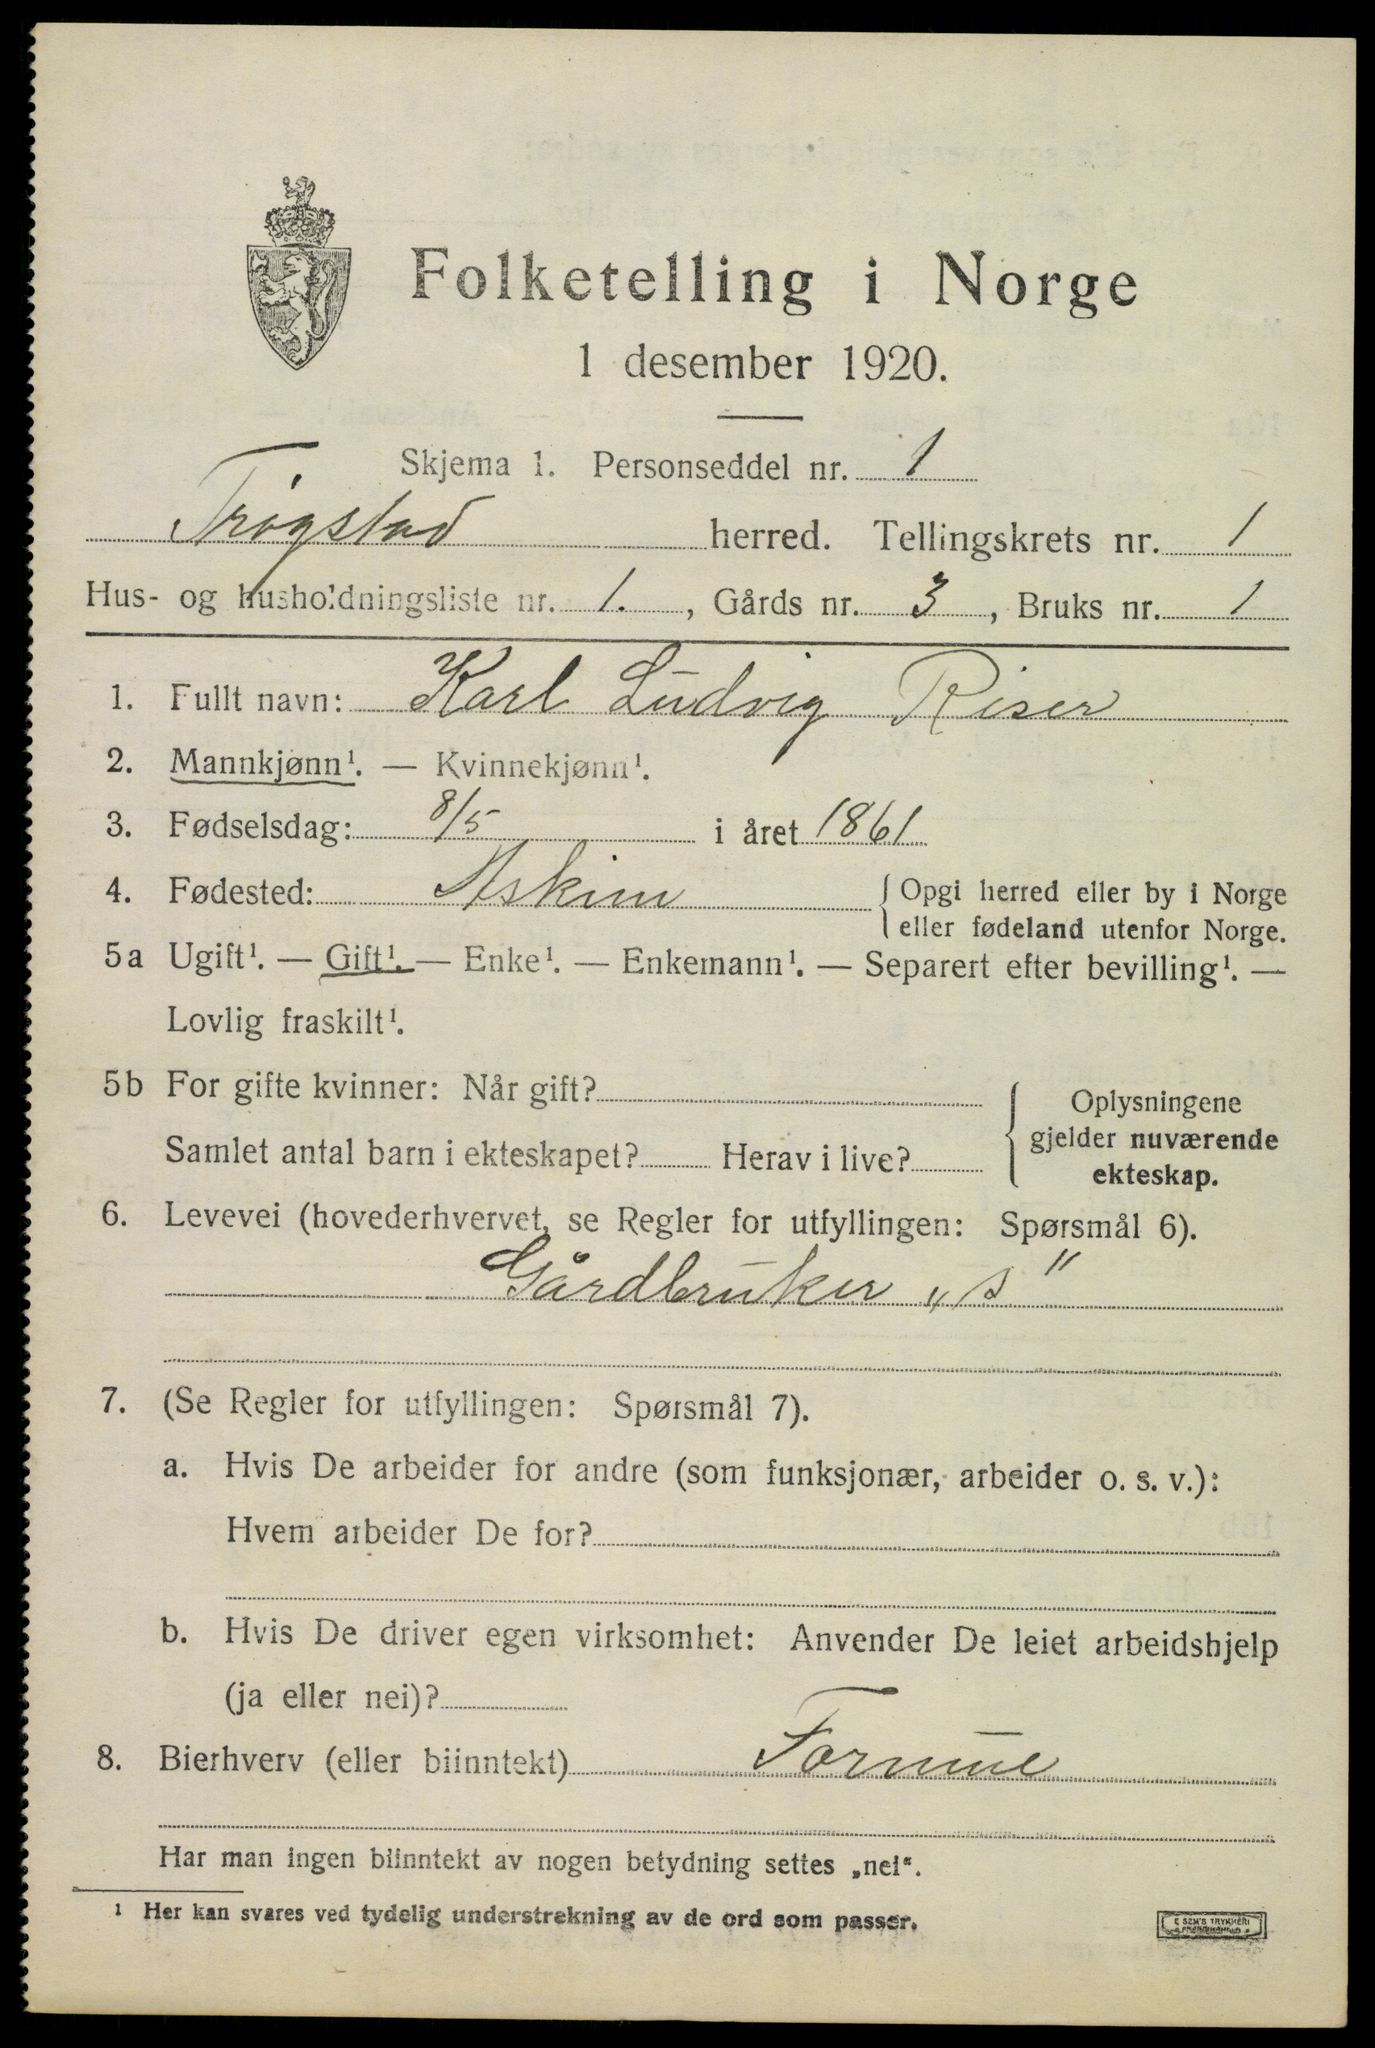 Folketelling i Norge
1 desember 1920.
Skjema 1. Personseddel nr. 1
Trøgstad herred. Tellingskrets nr. 1
Hus- og husholdningsliste nr. 1. , Gårds nr. 3 , Bruks nr. 1
1. Fullt navn: Karl Ludvig Riser
2. Mannkjønn¹. — Kvinnekjønn¹.
3. Fødselsdag: 8/5 i året 1861
4. Fødested: Askim { Opgi herred eller by i Norge
eller fødeland utenfor Norge.
5a Ugift¹. — Gift¹. — Enke¹. — Enkemann¹. — Separert efter bevilling¹. —
Lovlig fraskilt¹.
5b For gifte kvinner: Når gift?
Samlet antal barn i ekteskapet? Herav i live?
Oplysningene
gjelder nuværende
ekteskap.
6. Levevei (hovederhvervet, se Regler for utfyllingen: Spørsmål 6).
Gårdbruker „s“
7. (Se Regler for utfyllingen: Spørsmål 7).
a. Hvis De arbeider for andre (som funksjonær, arbeider o. s. v.):
Hvem arbeider De for?
b. Hvis De driver egen virksomhet: Anvender De leiet arbeidshjelp
(ja eller nei)?
8. Bierhverv (eller biinntekt) Formue
Har man ingen biinntekt av nogen betydning settes „nei“.
¹ Her kan svares ved tydelig understrekning av de ord som passer.